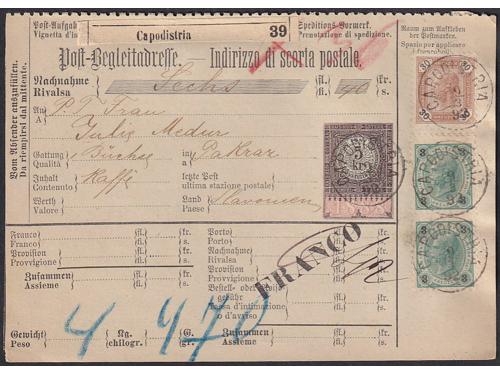 Post-Aufgabe
Vignetta d'im
Capodistria 39
Speditions-Vormerk.
Prenotazione di spedizione.
Raum zum Aufkleben
der Postmarken.
Spazio per applicare
i francobolli
Post-Begleitadresse. — Indirizzo di scorta postale.
Nachnahme
Rivalsa
Sechs fl. 90 kr.
fl. s.
Vom Absender auszufüllen.
Da riempirsi dal mittente.
An
A
P. T. Frau
Julie Medur
Gattung
Qualità
Büchse
in
a
Pakraz
Inhalt
Contenuto
Kaffé
letzte Post
ultima stazione postale
Werth
Valore
fl.
fl.
kr.
s.
Land
Paese
Slavonien
5
KR.
30 30
30 30
CAPODISTRIA
3 3
CAPODISTRIA
3 3
CAPODISTRIA
Franco
Franco
Provision
Provvigione
Zusammen
Assieme
fl. kr.
fl. s.
Porto
Porto
Nachnahme
Rivalsa
Provision
Provvigione
Bestell- oder Aviso-
gebühr
Tassa d'intimazione
o d'avviso
fl. kr.
fl. s.
FRANCO
Gewicht
Peso
4
Kg.
chilogr.
470
Gr.
gr.
Zusammen
Assieme
fl. kr.
fl. s.